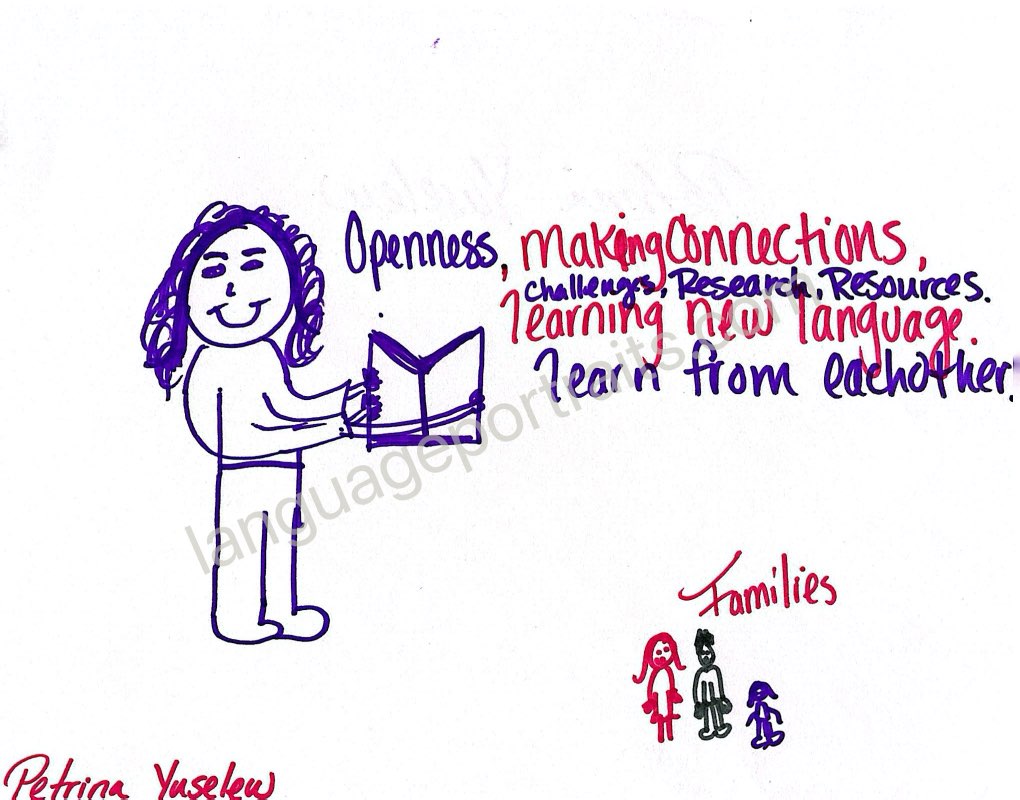 Openness, making connections,
challenges, Research, Resources.
learning new language.
learn from eachother.
Families
Petrina Yuselew
languageportraits.com